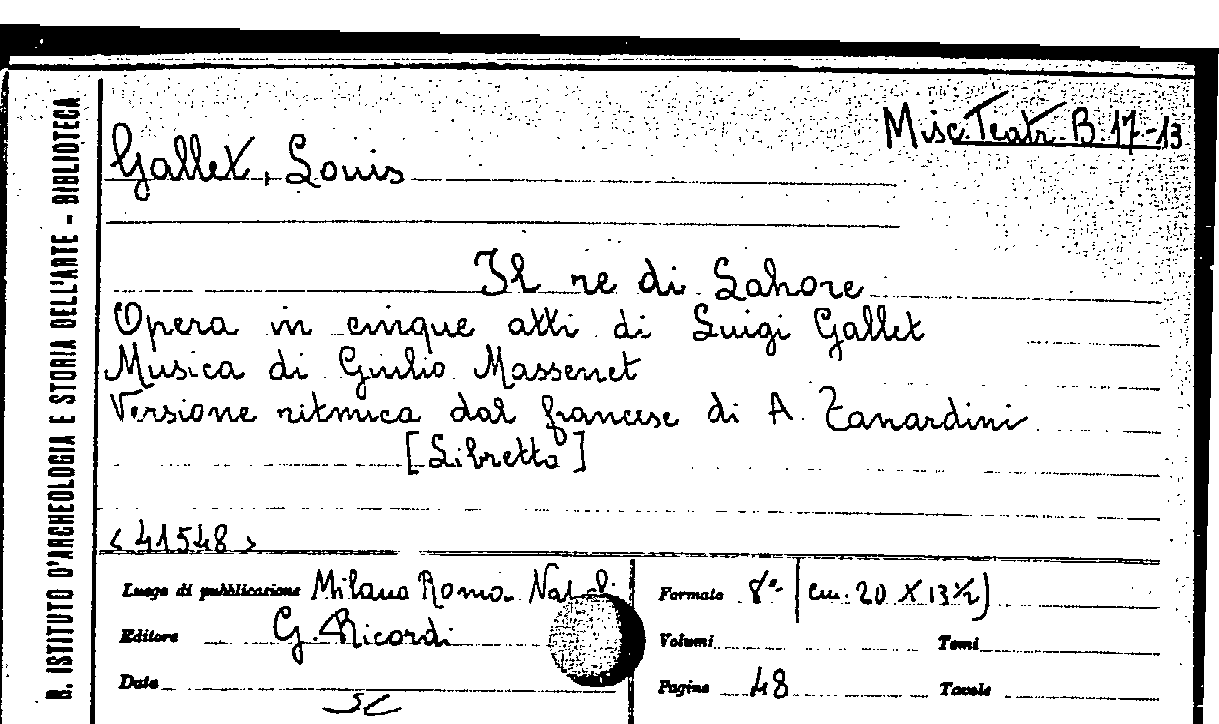 Misc. Teatr. B. 17-13
Gallet, Louis
Il re di Lahore
Opera in cinque atti di Luigi Gallet
Musica di Giulio Massenet
Versione ritmica dal francese di A. Zanardini
[Libretto]
<41548>
Luogo di pubblicazione Milano Roma
Editore G. Ricordi
Data
Formato 8° (cm. 20 X 13½)
Volumi Tomi
Pagine 48 Tavole
R. ISTITUTO D'ARCHEOLOGIA E STORIA DELL'ARTE - BIBLIOTECA